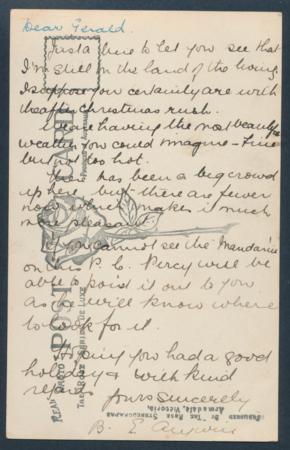 Dear Gerald.
Just a line to let you see that
I'm still in the land of the living.
I suppose you certainly are with
the after christmas rush.
We are having the most beautiful
weather you could imagine - fine
but not too hot.
There has been a big crowd
up here but there are fewer
now which makes it much
more pleasant.
If you cannot see the "Mandarin"
on this P.C. Percy will be
able to point it out to you
as he will know where
to look for it.
Hoping you had a good
holiday & with kind
regards
Yours sincerely
B. E.
POST CARD
REAL PHOTO
THE ROSE SERIES DE LUXE
PUBLISHED BY THE ROSE STEREOGRAPHS
ARMADALE, VICTORIA.